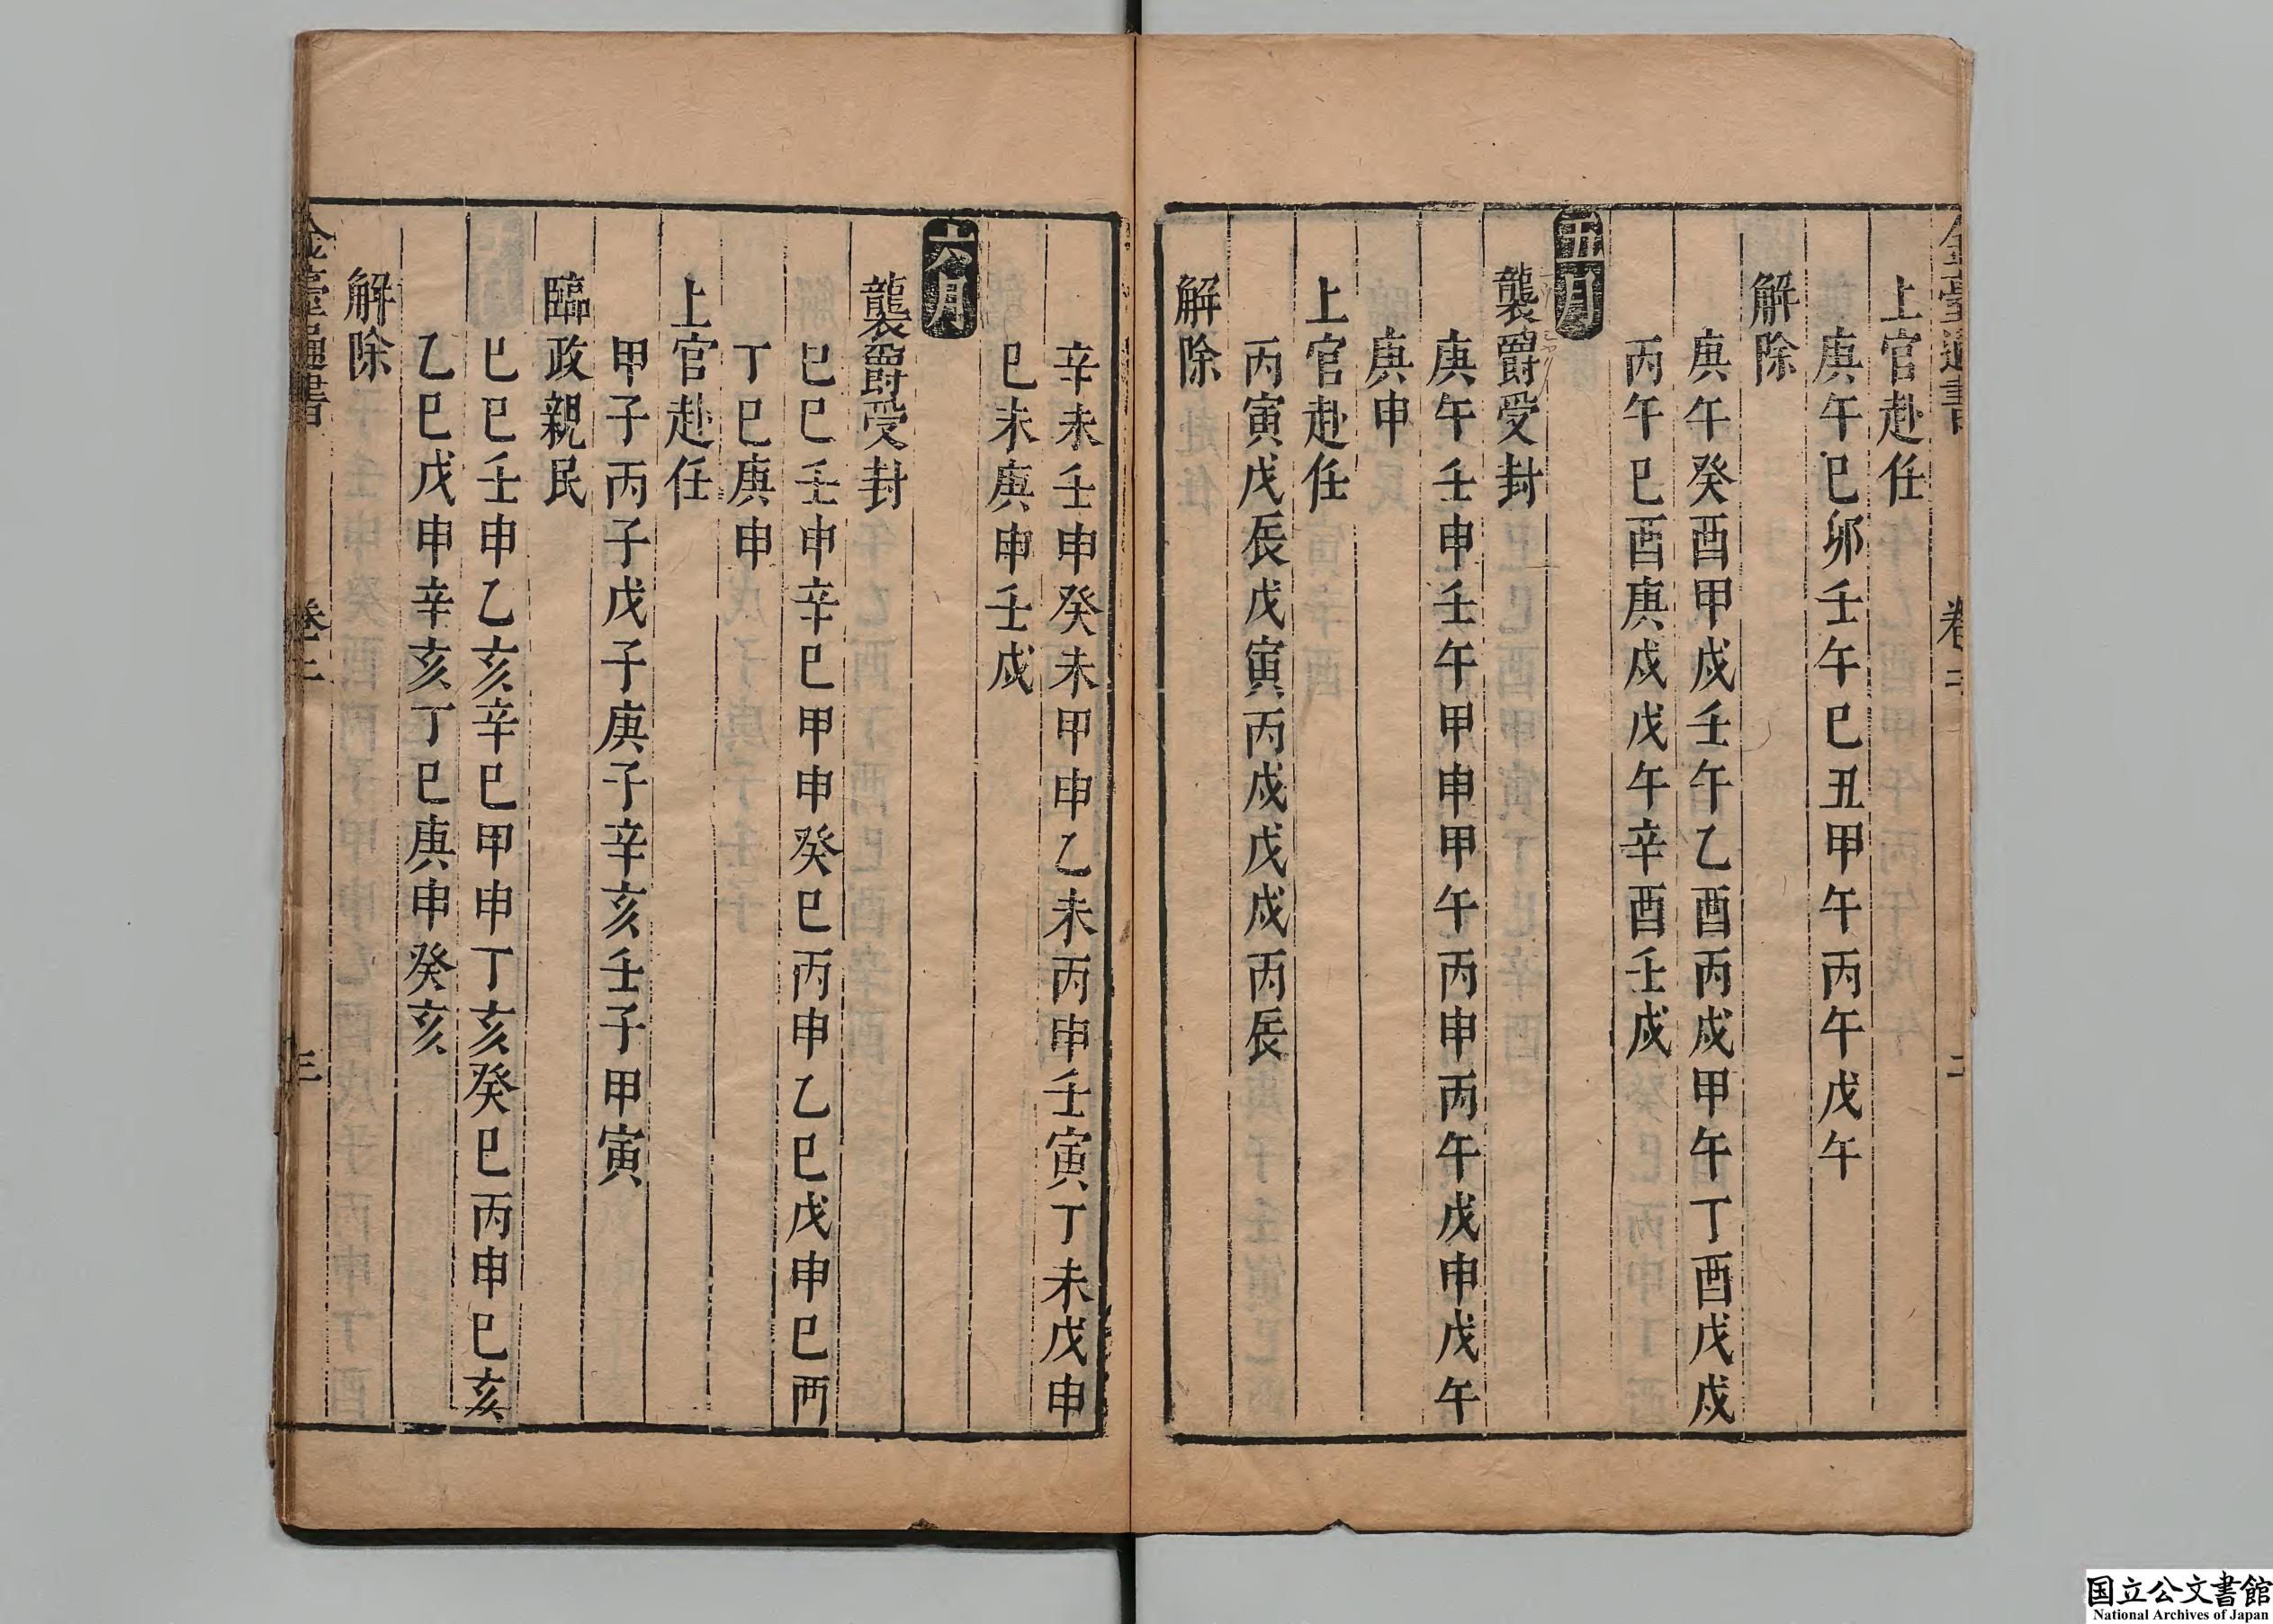 卷二
二
上官赴任
庚午巳卯壬午巳丑甲午丙午戊午
解除
庚午癸酉甲戌壬午乙酉丙戌甲午丁酉戊戌
丙午巳酉庚戌戊午辛酉壬戌
五月
襲爵受封
庚午壬申壬午甲申甲午丙申丙午戊申戊午
庚申
上官赴任
丙寅戊辰戊寅丙戌戊戌丙辰
解除
辛未壬申癸未甲申乙未丙申壬寅丁未戊申
巳未庚申壬戌
六月
襲爵受封
巳巳壬申辛巳甲申癸巳丙申乙巳戊申巳酉
丁巳庚申
上官赴任
甲子丙子戊子庚子辛亥壬子甲寅
臨政親民
巳巳壬申乙亥辛巳甲申丁亥癸巳丙申巳亥
乙巳戊申辛亥丁巳庚申癸亥
解除
卷二
三
国立公文書館
National Archives of Japan